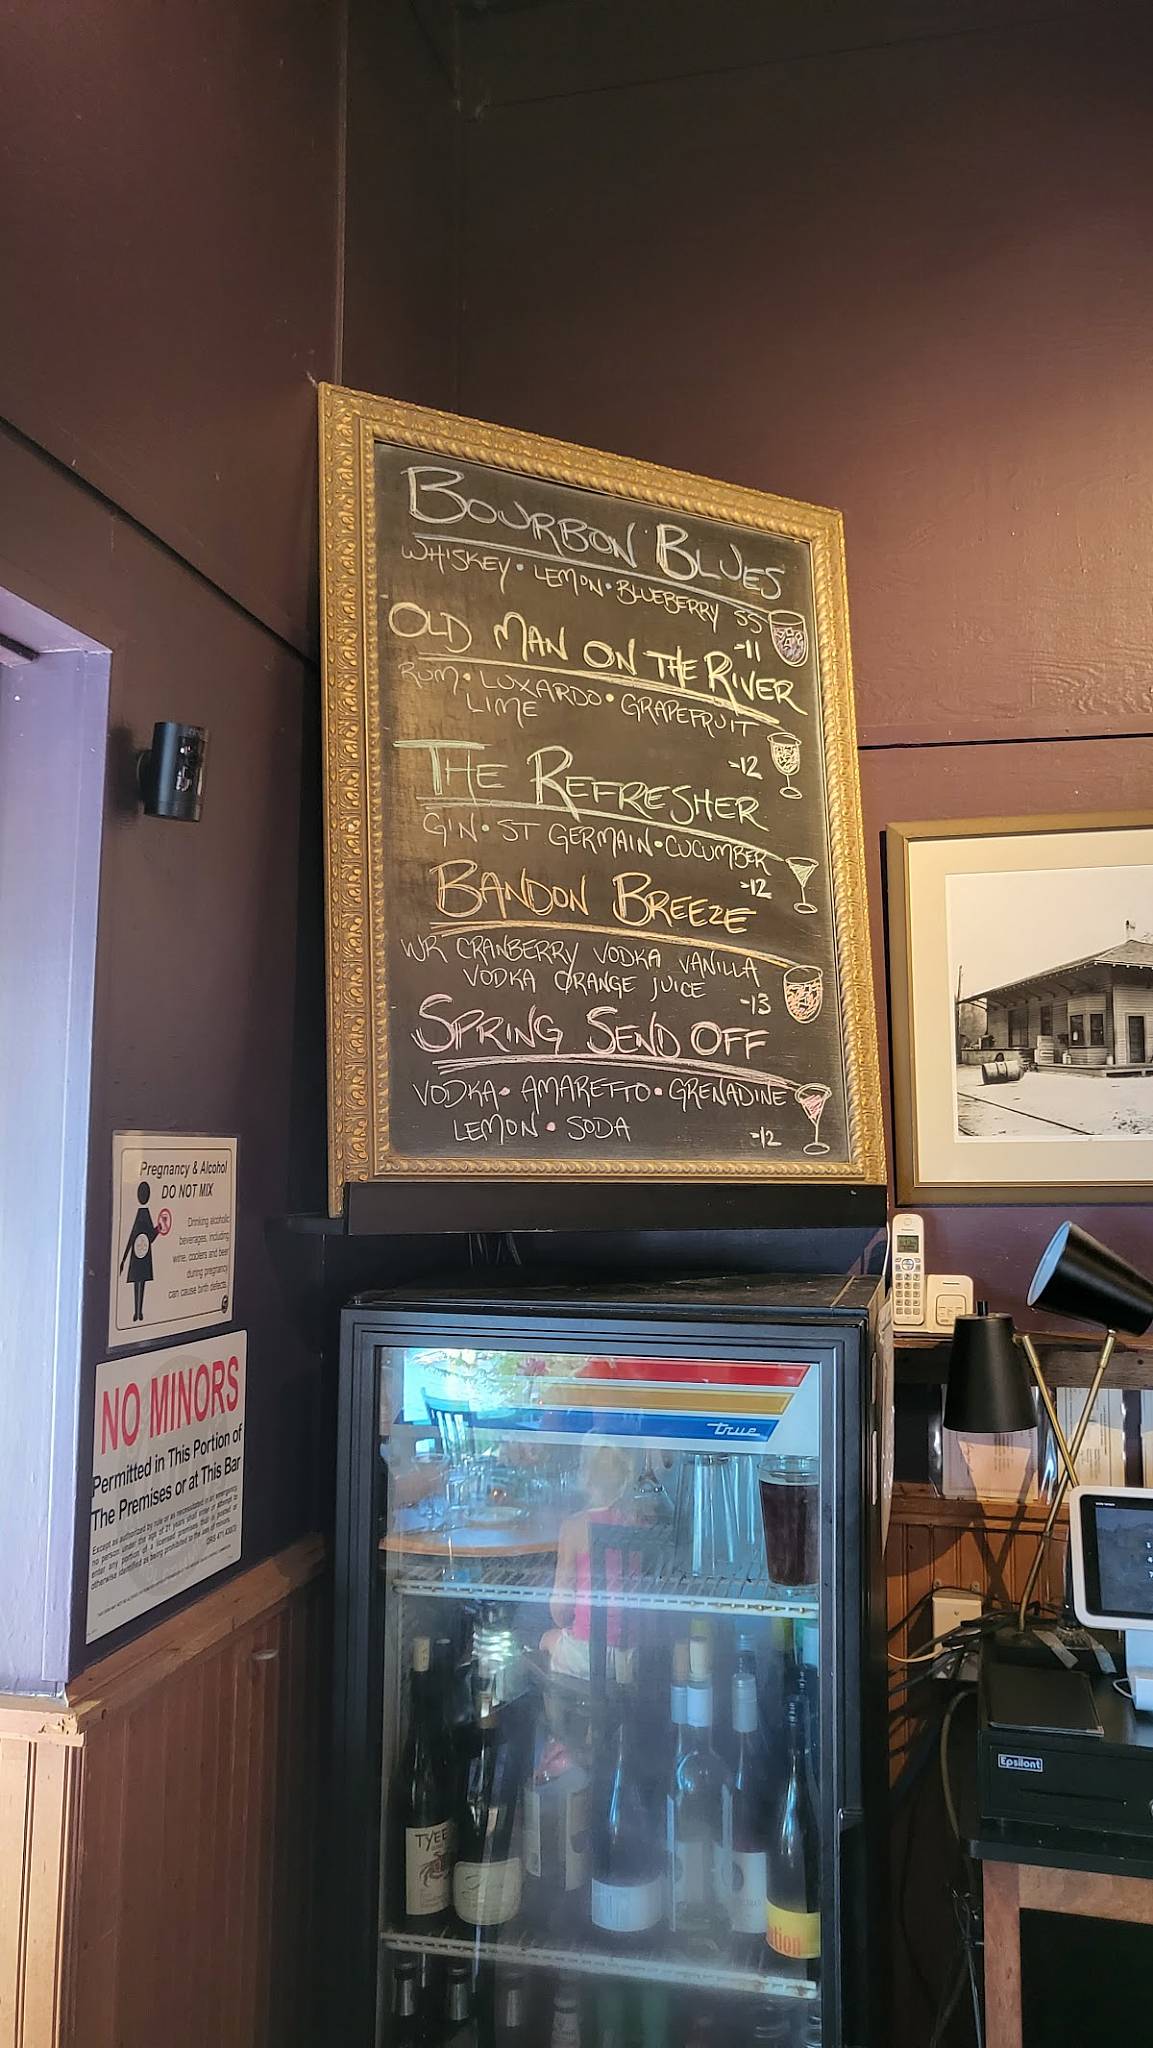 BOURBON BLUES
WHISKEY • LEMON • BLUEBERRY SS
-11
OLD MAN ON THE RIVER
RUM • LUXARDO • GRAPEFRUIT
LIME
-12
THE REFRESHER
GIN • ST GERMAIN • CUCUMBER
-12
BANDON BREEZE
WR CRANBERRY VODKA VANILLA
VODKA ORANGE JUICE
-13
SPRING SEND OFF
VODKA • AMARETTO • GRENADINE
LEMON • SODA
-12
Pregnancy & Alcohol
DO NOT MIX
Drinking alcoholic
beverages, including
wine, coolers and beer
during pregnancy
can cause birth defects.
NO MINORS
Permitted in This Portion of
The Premises or at This Bar
Except as authorized by rule or as necessitated in an emergency,
no person under the age of 21 years shall enter or attempt to
enter any portion of a licensed premises that is posted or
otherwise identified as being prohibited to the use of minors.
ORS 471.430(3)
true
TYEE
Epsilont